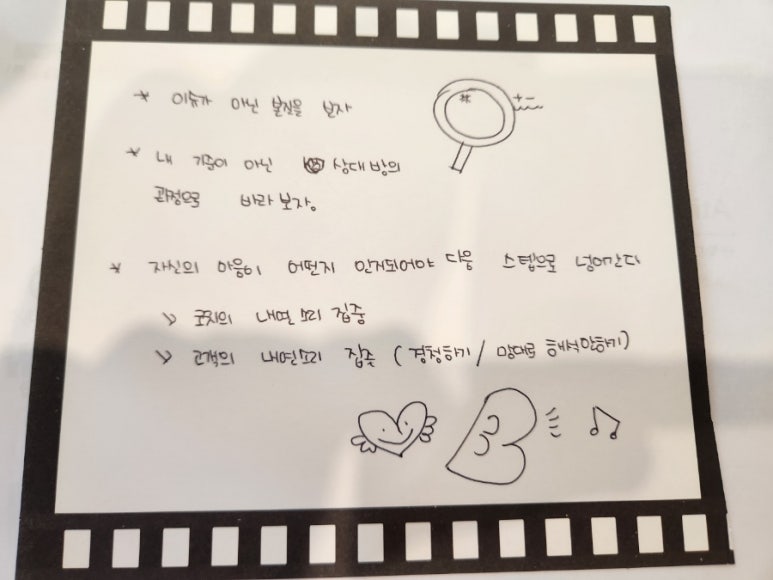 * 이슈가 아닌 본질을 보자
* 내 기준이 아닌 상대방의
관점으로 바라보자.
* 자신의 마음이 어떤지 인지되어야 다음 스텝으로 넘어간다
> 코치의 내면소리 집중
> 고객의 내면소리 집중 (경청하기 / 맘대로 해석안하기)